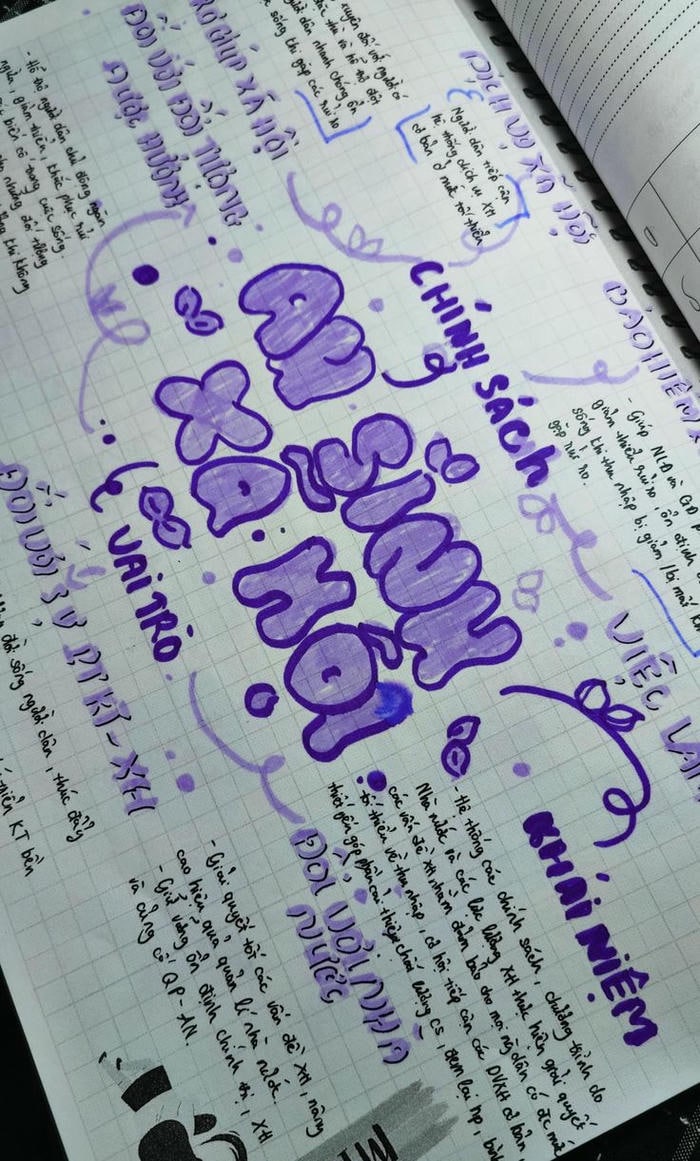 AN SINH
XÃ HỘI
CHÍNH SÁCH
DỊCH VỤ XÃ HỘI
Người dân tiếp cận
hệ thống dịch vụ XH
cơ bản ở mức tối thiểu
TRỢ GIÚP XÃ HỘI
sống khi gặp các rủi ro
BẢO HIỂM X
- Giúp NLĐ và GĐ
giảm thiểu rủi ro, ổn định
sống khi thu nhập bị giảm/bị mất
gặp rủi ro.
VIỆC LÀM
KHÁI NIỆM
- Hệ thống các chính sách, chương trình do
Nhà nước và các lực lượng XH thực hiện giải quyết
các vấn đề XH nhằm đảm bảo cho mọi ng dân có đc mức
tối thiểu về thu nhập, cơ hội tiếp cận các DVXH cơ bản
thiết yếu góp phần cải thiện chất lượng cs, đem lại hp,
VAI TRÒ
ĐỐI VỚI ĐỐI TƯỢNG
ĐƯỢC HƯỞNG
- Hỗ trợ người dân chủ động ngăn
ngừa, giảm thiểu, khắc phục rủi
biến cố trong cuộc sống.
những đối tượng
khi không
ĐỐI VỚI SỰ PTKT-XH
đời sống người dân, thúc đẩy
KT bền
ĐỐI VỚI NHÀ
NƯỚC
- Giải quyết tốt các vấn đề XH, nâng
cao hiệu quả quản lí nhà nước.
- Giữ vững ổn định chính trị, XH
và củng cố QP-AN.